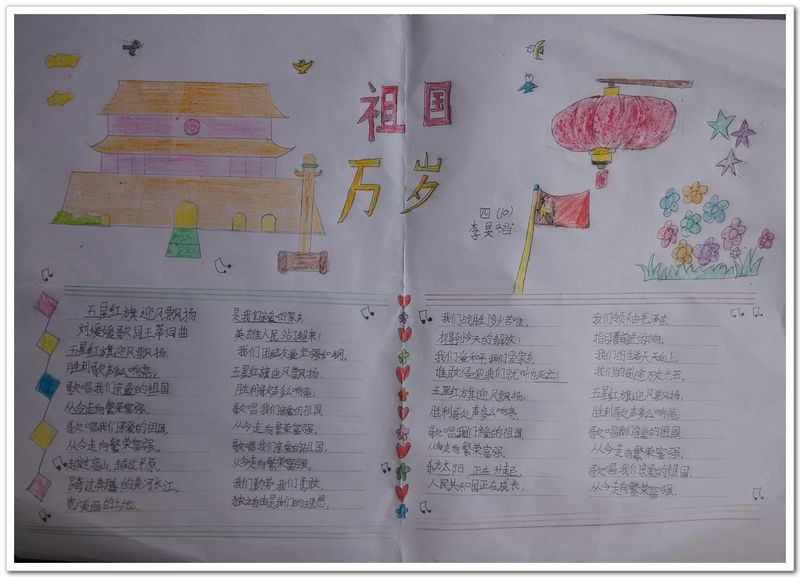 祖国
万岁
四(10)
五星红旗迎风飘扬
刘媛媛歌词王莘词曲
五星红旗迎风飘扬,
胜利歌声多么响亮;
歌唱我们亲爱的祖国,
从今走向繁荣富强。
歌唱我们亲爱的祖国,
从今走向繁荣富强。
越过高山,越过平原,
跨过奔腾的黄河长江,
美丽的土地,
是我们亲爱的家乡
英雄人民站起来!
我们团结友爱坚强如钢。
五星红旗迎风飘扬,
胜利歌声多么响亮,
歌唱我们亲爱的祖国
从今走向繁荣富强。
歌唱我们亲爱的祖国,
从今走向繁荣富强。
我们勤劳,我们勇敢,
独立自由是我们的理想,
我们战胜多少苦难,
才得到今天的解放!
我们爱和平我们爱家乡
谁敢侵犯我们就叫他死亡!
五星红旗迎风飘扬,
胜利歌声多么响亮,
歌唱我们亲爱的祖国
从今走向繁荣富强。
东方太阳,正在升起,
人民共和国正在成长;
我们领袖毛泽东
指引着前进的方向。
我们的生活天天向上,
我们的前途万丈光芒。
五星红旗迎风飘扬,
胜利歌声多么响亮,
歌唱我们亲爱的祖国,
从今走向繁荣富强。
歌唱我们亲爱的祖国
从今走向繁荣富强。